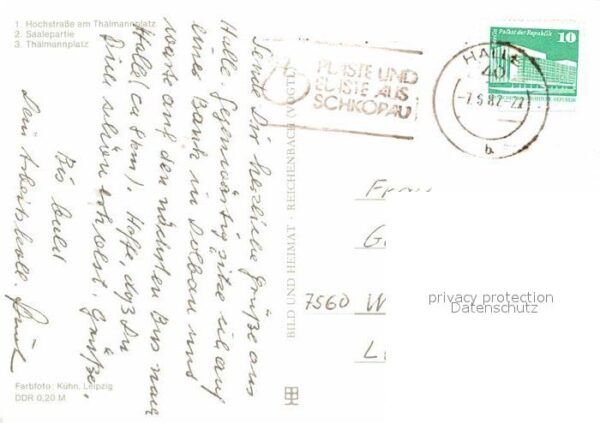 1. Hochstraße am Thälmannplatz
2. Saalepartie
3. Thälmannplatz
Sende Dir herzliche Grüße aus
Halle. Gegenwärtig sitze ich auf
einer Bank in Dölbau und
warte auf den nächsten Bus nach
Halle (ca 8 km). Hoffe, daß Du
Dich schön erholst. Grüße,
Bis bald
Dein Arbeitskoll.
Farbfoto: Kühn, Leipzig
DDR 0,20 M
BILD UND HEIMAT · REICHENBACH (VOGTL)
PLASTE UND
ELASTE AUS
SCHKOPAU
HALLE
40
-7.5.82-22
b
Palast der Republik
10
7560 W
privacy protection
Datenschutz